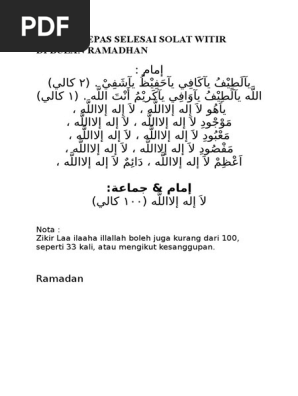 PDF
EPAS SELESAI SOLAT WITIR
RAMADHAN
إمام :
يآلَطِيْفُ يآكَافِي يآحَفِيْظُ يآشَفِيْ. (٢ كالي)
اللَّه يآلَطِيْفُ يآوَافِي يآكَرِيْمُ أَنْتَ اللَّه. (١ كالي)
يآهُو لاَ إله إلااللَّه ، لاَ إله إلااللَّه ،
مَوْجُودِ لاَ إله إلااللَّه ، لاَ إله إلااللَّه ،
مَعْبُودِ لاَ إله إلااللَّه ، لاَ إله إلااللَّه ،
مَقْصُودِ لاَ إله إلااللَّه ، لاَ إله إلااللَّه ،
اَعْظِمْ لاَ إله إلااللَّه ، دَائِمُ لاَ إله إلااللَّه ،
إمام & جماعة:
لاَ إله إلااللَّه (١٠٠ كالي)
Nota :
Zikir Laa ilaaha illallah boleh juga kurang dari 100,
seperti 33 kali, atau mengikut kesanggupan.
Ramadan